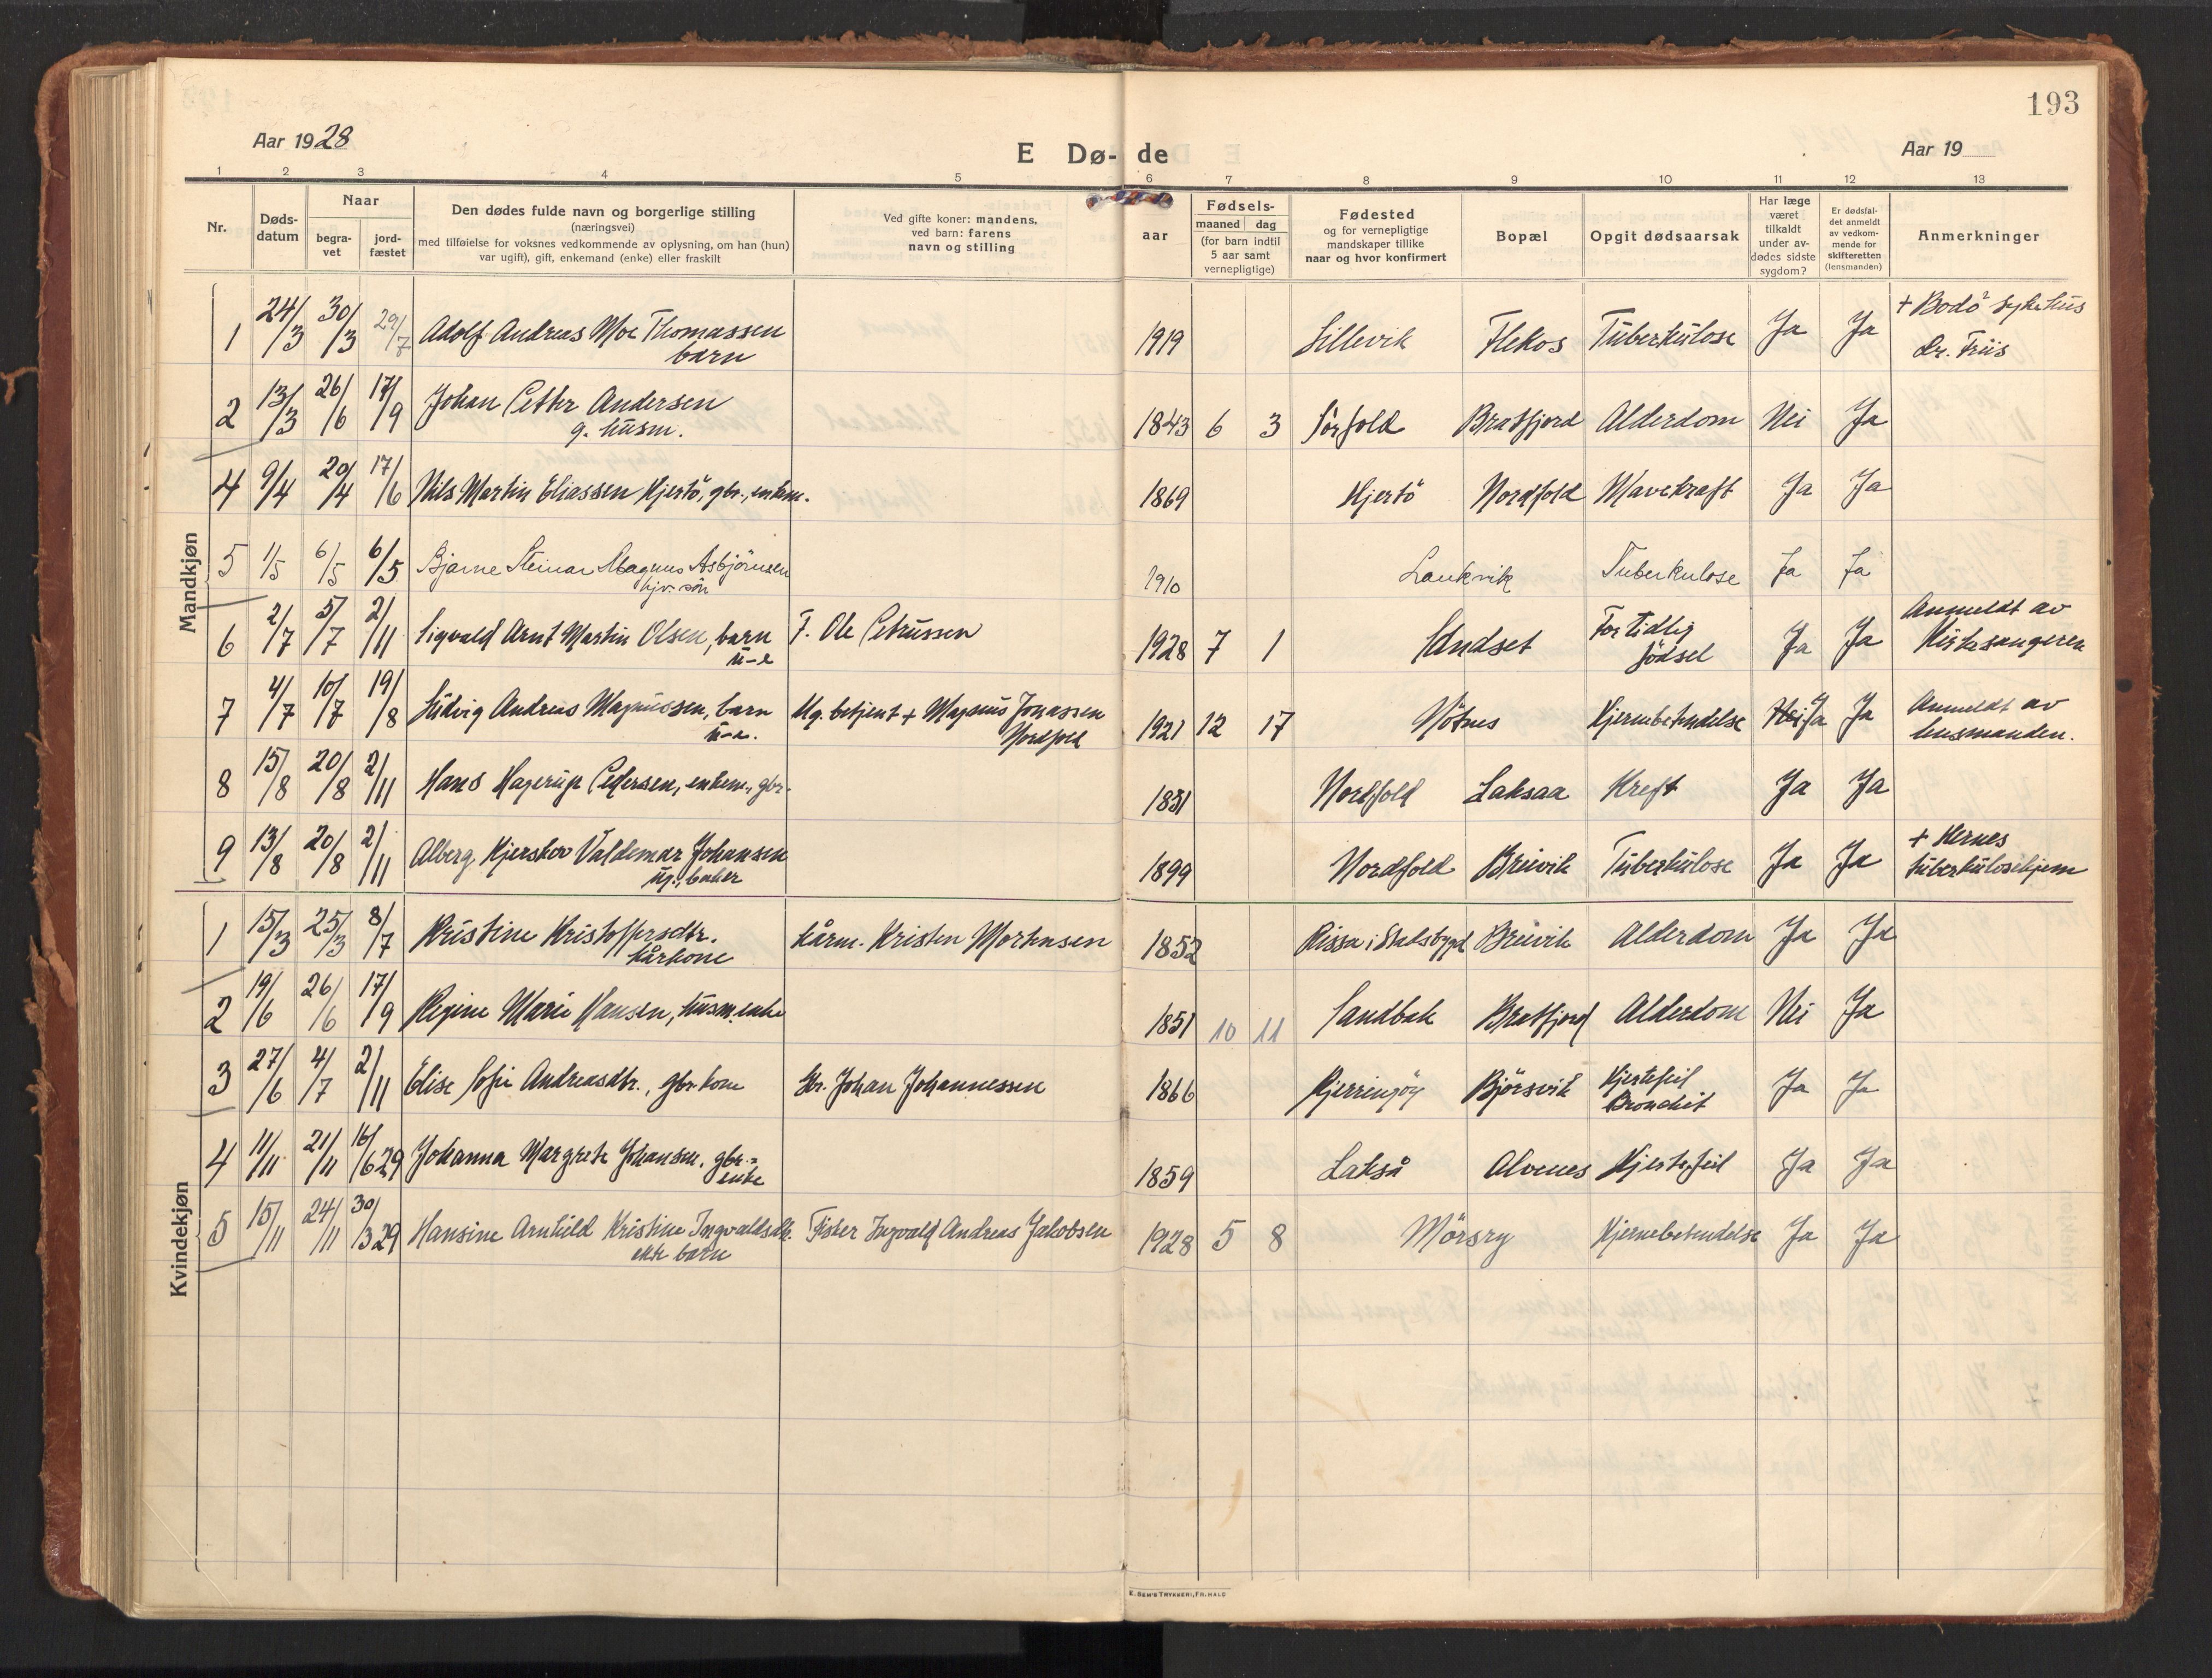 193
Aar 1928
E Dø- de
Aar 19
1 2 3 4 5 6 7 8 9 10 11 12 13
Nr.
Døds-
datum
Naar
begra-
vet
jord-
fæstet
Den dødes fulde navn og borgerlige stilling
(næringsvei)
med tilføielse for voksnes vedkommende av oplysning, om han (hun)
var ugift), gift, enkemand (enke) eller fraskilt
Ved gifte koner: mandens,
ved barn: farens
navn og stilling
aar
Fødsels-
maaned dag
(for barn indtil
5 aar samt
vernepligtige)
Fødested
og for vernepligtige
mandskaper tillike
naar og hvor konfirmert
Bopæl
Opgit dødsaarsak
Har læge
været
tilkaldt
under av-
dødes sidste
sygdom?
Er dødsfal-
det anmeldt
av vedkom-
mende for
skifteretten
(lensmanden)
Anmerkninger
Mandkjøn
1 24/3 30/3 29/7 Adolf Andreas Moe Thomassen 1919 Lillevik Flekos Tuberkulose Ja Ja + Bodö sykehus
barn Dr. Friis
2 13/3 26/6 17/9 Johan Petter Andersen 1843 6 3 Sörfold Bratfjord Alderdom Nei Ja
g. husm.
4 9/4 20/4 17/6 Nils Martin Eliassen Hjertö, gbr., enkem. 1869 Hjertö Nordfold Mavekraft Ja Ja
5 1/5 6/5 6/5 Bjarne Steinar Magnus Asbjörnsen 1910 Laukvik Tuberkulose Ja Ja
sön
6 2/7 5/7 2/11 Sigvald Arnt Martin Olsen, barn F. Ole Petrussen 1928 7 1 Sandset For tidlig födsel Ja Ja Anmeldt av
u-e Kirkesangeren
7 4/7 10/7 19/8 Ludvig Andreas Magnussen, barn Ug. betjent + Magnus Jonassen 1921 12 17 Nötnes Hjernebetendelse Nei Ja Ja Anmeldt av
u-e. Nordfold lensmanden.
8 15/8 20/8 2/11 Hans Hagerup Pedersen, enkem., gbr. 1851 Nordfold Laksaa Kreft Ja Ja
9 13/8 20/8 2/11 Alberg. Kjerskov Valdemar Johansen 1899 Nordfold Breivik Tuberkulose Ja Ja + Hernes
ug., baker tuberkulosehjem
Kvindekjøn
1 15/3 25/3 8/7 Kristine Kristoffersdtr. kårm. Kristen Mortensen 1852 Rissa i Stadsbygd Breivik Alderdom Ja Ja
kårkone
2 19/6 26/6 17/9 Regine Marie Hansen, husm. enke 1851 10 11 Sandbak Bratfjord Alderdom Nei Ja
3 27/6 4/7 2/11 Elise Sofie Andreasdtr., gbr. kone Gbr. Johan Johannessen 1866 Kjerringöy Björsvik Hjertefeil Ja Ja
Bronchit
4 11/11 21/11 16/6 29 Johanna Margrete Johansen. gbr.- 1859 Lakså Alvenes Hjertefeil Ja Ja
enke
5 15/11 24/11 30/3 29 Hansine Arnhild Kristine Ingvaldsdtr. Fisker Ingvald Andreas Jakobsen 1928 5 8 Mörsry Hjernebetendelse Ja Ja
ekte barn
E. SEM'S TRYKKERI, FR.HALD